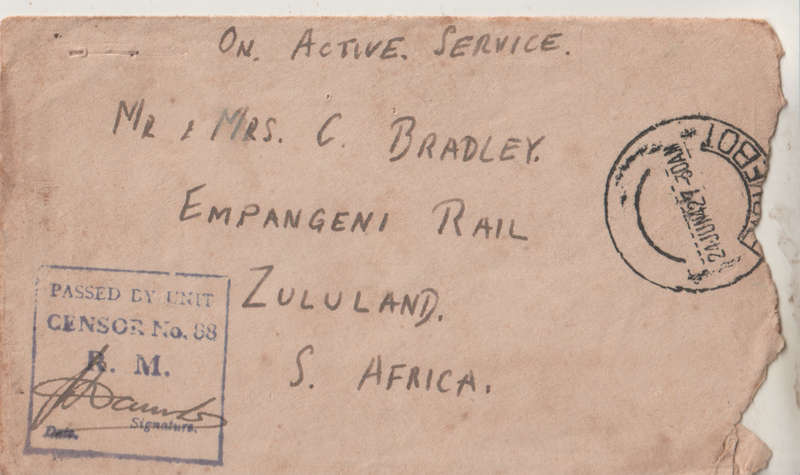 ON. ACTIVE. SERVICE.
MR & MRS. C. BRADLEY.
EMPANGENI RAIL
ZULULAND.
S. AFRICA.
PASSED BY UNIT
CENSOR No. 88
R. M.
Signature.
Date.